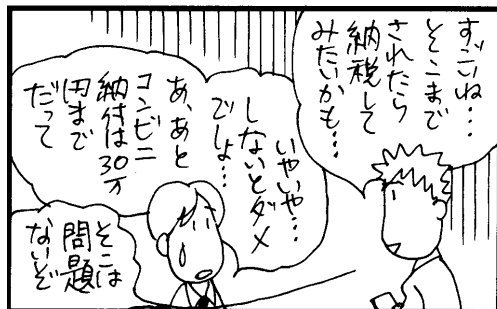 すごいね…
そこまで
されたら
納税して
みたいかも…
いやいや…
しないとダメ
でしょ…
あ、あと
コンビニ
納付は30万
円まで
だって
そこは
問題
ないぞ